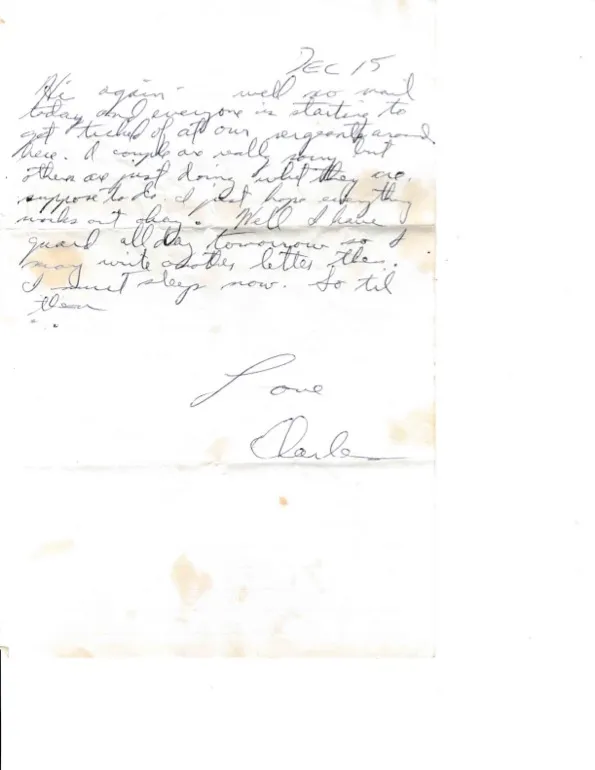 DEC 15
Hi again - well no mail
today and everyone is starting to
get ticked off at our sergeants around
here. A couple are really but
others are just doing what they are
suppose to do. I just hope everything
works out okay. Well I have
guard all day tomorrow so I
may write another letter then.
I must sleep now. So til
then
...
Love